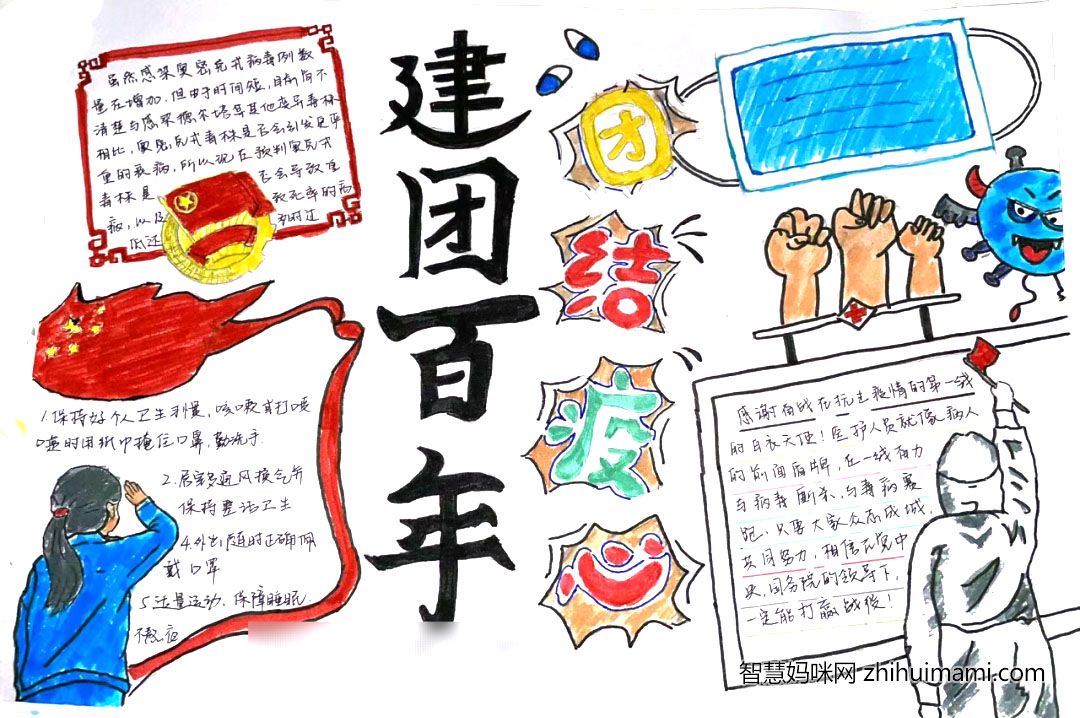 虽然感染奥密克戎病毒例数
量在增加,但由于时间短,目前尚不
清楚与感染德尔塔等其他变异毒株
相比,奥密克戎毒株是否会引发更严
重的疾病,所以现在预判奥克戎
毒株是 否会导致重
病,以及 致死率的高
低还 为时过
建团百年
才
结
疫
心
1.保持好个人卫生习惯,咳嗽或打喷
嚏时用纸巾掩住口鼻,勤洗手.
2.居室多通风换气并
保持整洁卫生
4.外出随时正确佩
戴口罩
5.适量运动.保障睡眠.
不熬夜
感谢奋战在抗击疫情的第一线
的白衣天使!医护人员就像病人
的前面盾牌,在一线奋力
与病毒厮杀,与毒病赛
跑.只要大家众志成城.
共同努力.相信在党中
央,国务院的领导下,
一定能打赢战役!
智慧妈咪网 zhihuimami.com